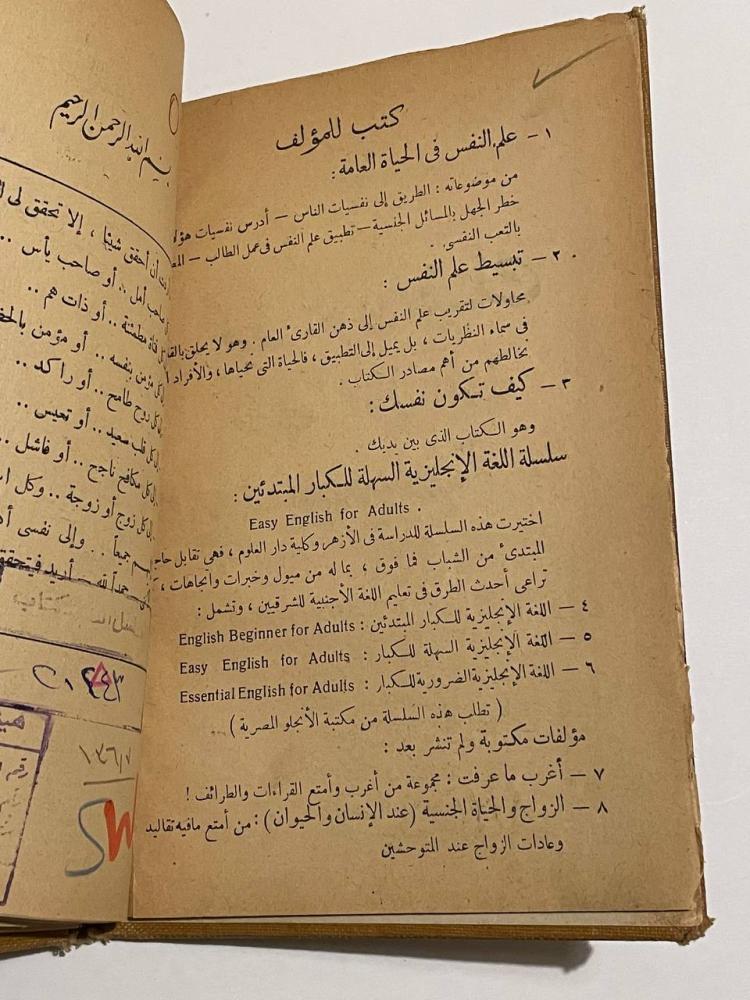 كتب للمؤلف
١ - علم النفس فى الحياة العامة :
من موضوعاته : الطريق إلى نفسيات الناس – أدرس نفسيات
خطر الجهل بالمسائل الجنسية – تطبيق علم النفس فى عمل الطالب –
بالتعب النفسى .
٢ - تبسيط علم النفس :
محاولات لتقريب علم النفس إلى ذهن القارىء العام . وهو لا يحلق
فى سماء النظريات ، بل يميل إلى التطبيق ، فالحياة التى نحياها ، والأفراد
نخالطهم من أهم مصادر الكتاب .
٣ - كيف تكون نفسك :
وهو الكتاب الذى بين يديك .
سلسلة اللغة الإنجليزية السهلة للكبار المبتدئين :
Easy English for Adults .
اختيرت هذه السلسلة للدراسة فى الأزهر وكلية دار العلوم ، فهى تقابل
المبتدىء من الشباب فما فوق ، بما له من ميول وخبرات واتجاهات ،
تراعى أحدث الطرق فى تعليم اللغة الأجنبية للشرقيين ، وتشمل :
٤ – اللغة الإنجليزية للكبار المبتدئين : English Beginner for Adults
٥ – اللغة الإنجليزية السهلة للكبار : Easy English for Adults
٦ – اللغة الإنجليزية الضرورية للكبار : Essential English for Adults
( تطلب هذه السلسلة من مكتبة الأنجلو المصرية )
مؤلفات مكتوبة ولم تنشر بعد :
٧ – أغرب ما عرفت : مجموعة من أغرب وأمتع القراءات والطرائف !
٨ – الزواج والحياة الجنسية (عند الإنسان والحيوان) : من أمتع مافيه تقاليد
وعادات الزواج عند المتوحشين
بسم الله الرحمن الرحيم
أن أحقق شيئا ، إلا تحقق لى
صاحب أمل .. أو صاحب يأس ..
مطمئنة .. أو ذات هم ..
كل مؤمن بنفسه .. أو مؤمن
كل روح طامح .. أو راكد ..
كل قلب سعيد .. أو تعيس ..
كل مكافح ناجح .. أو فاشل ..
كل زوج أو زوجة .. وكل
جميعاً .. وإلى نفسى
حمداً لله
١٣٦/٧
رقم
SW